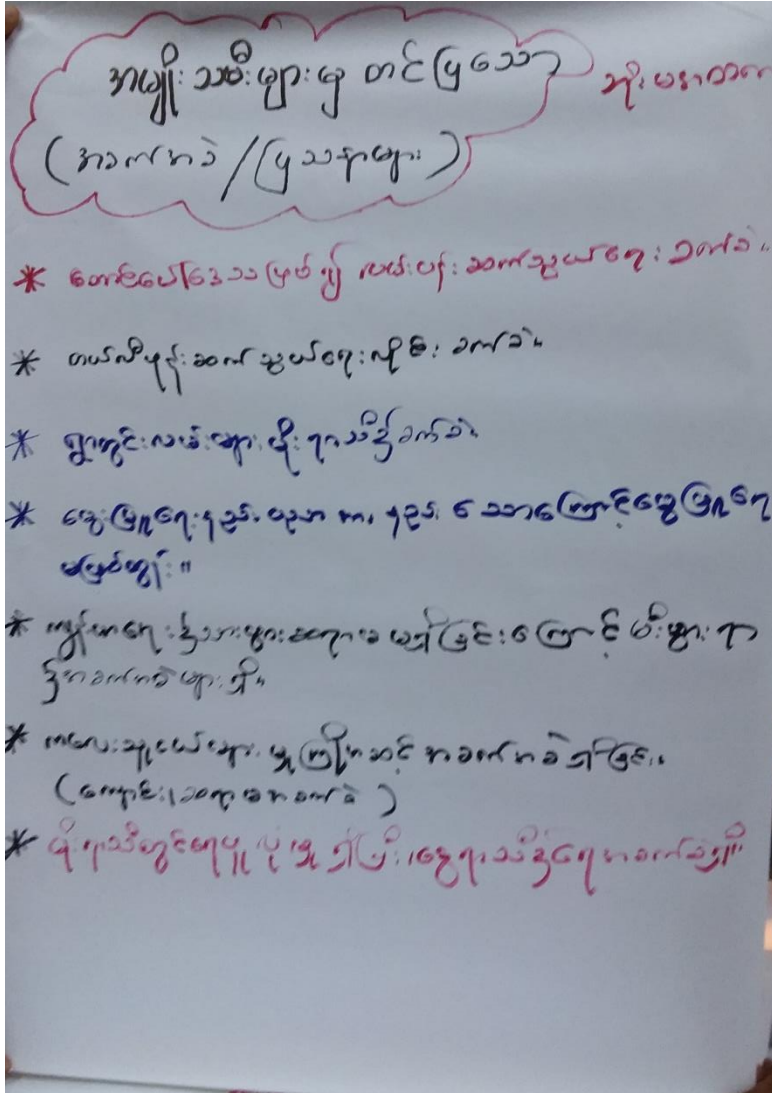 အမျိုးသမီးများမှ တင်ပြသော
(အခက်အခဲ/ပြသနာများ)
* တောင်ပေါ်ဒေသဖြစ်၍ လမ်းပန်းဆက်သွယ်ရေးခက်ခဲ။
* တယ်လီဖုန်းဆက်သွယ်ရေးလိုင်း ခက်ခဲ။
* ရွာတွင်းလမ်းများ မိုးရာသီ၌ခက်ခဲ
* မွေးမြူရေးနည်းပညာ အားနည်းသောကြောင့်မွေးမြူရေး
မဖြစ်ထွန်း။
* ကျန်းမာရေး၌သားဖွားဆရာမ မရှိခြင်းကြောင့် မီးဖွားရာ
၌အခက်အခဲများရှိ။
* ကလေးသူငယ်များ မူကြိုအဆင့် အခက်အခဲရှိခြင်း။
(ကျောင်း၊ဆရာမအခက်ခဲ)
* မိုးရာသီတွင်ရေပူပုံမှုရှိပြီး၊နွေရာသီ၌ရေအခက်ခဲရှိ။